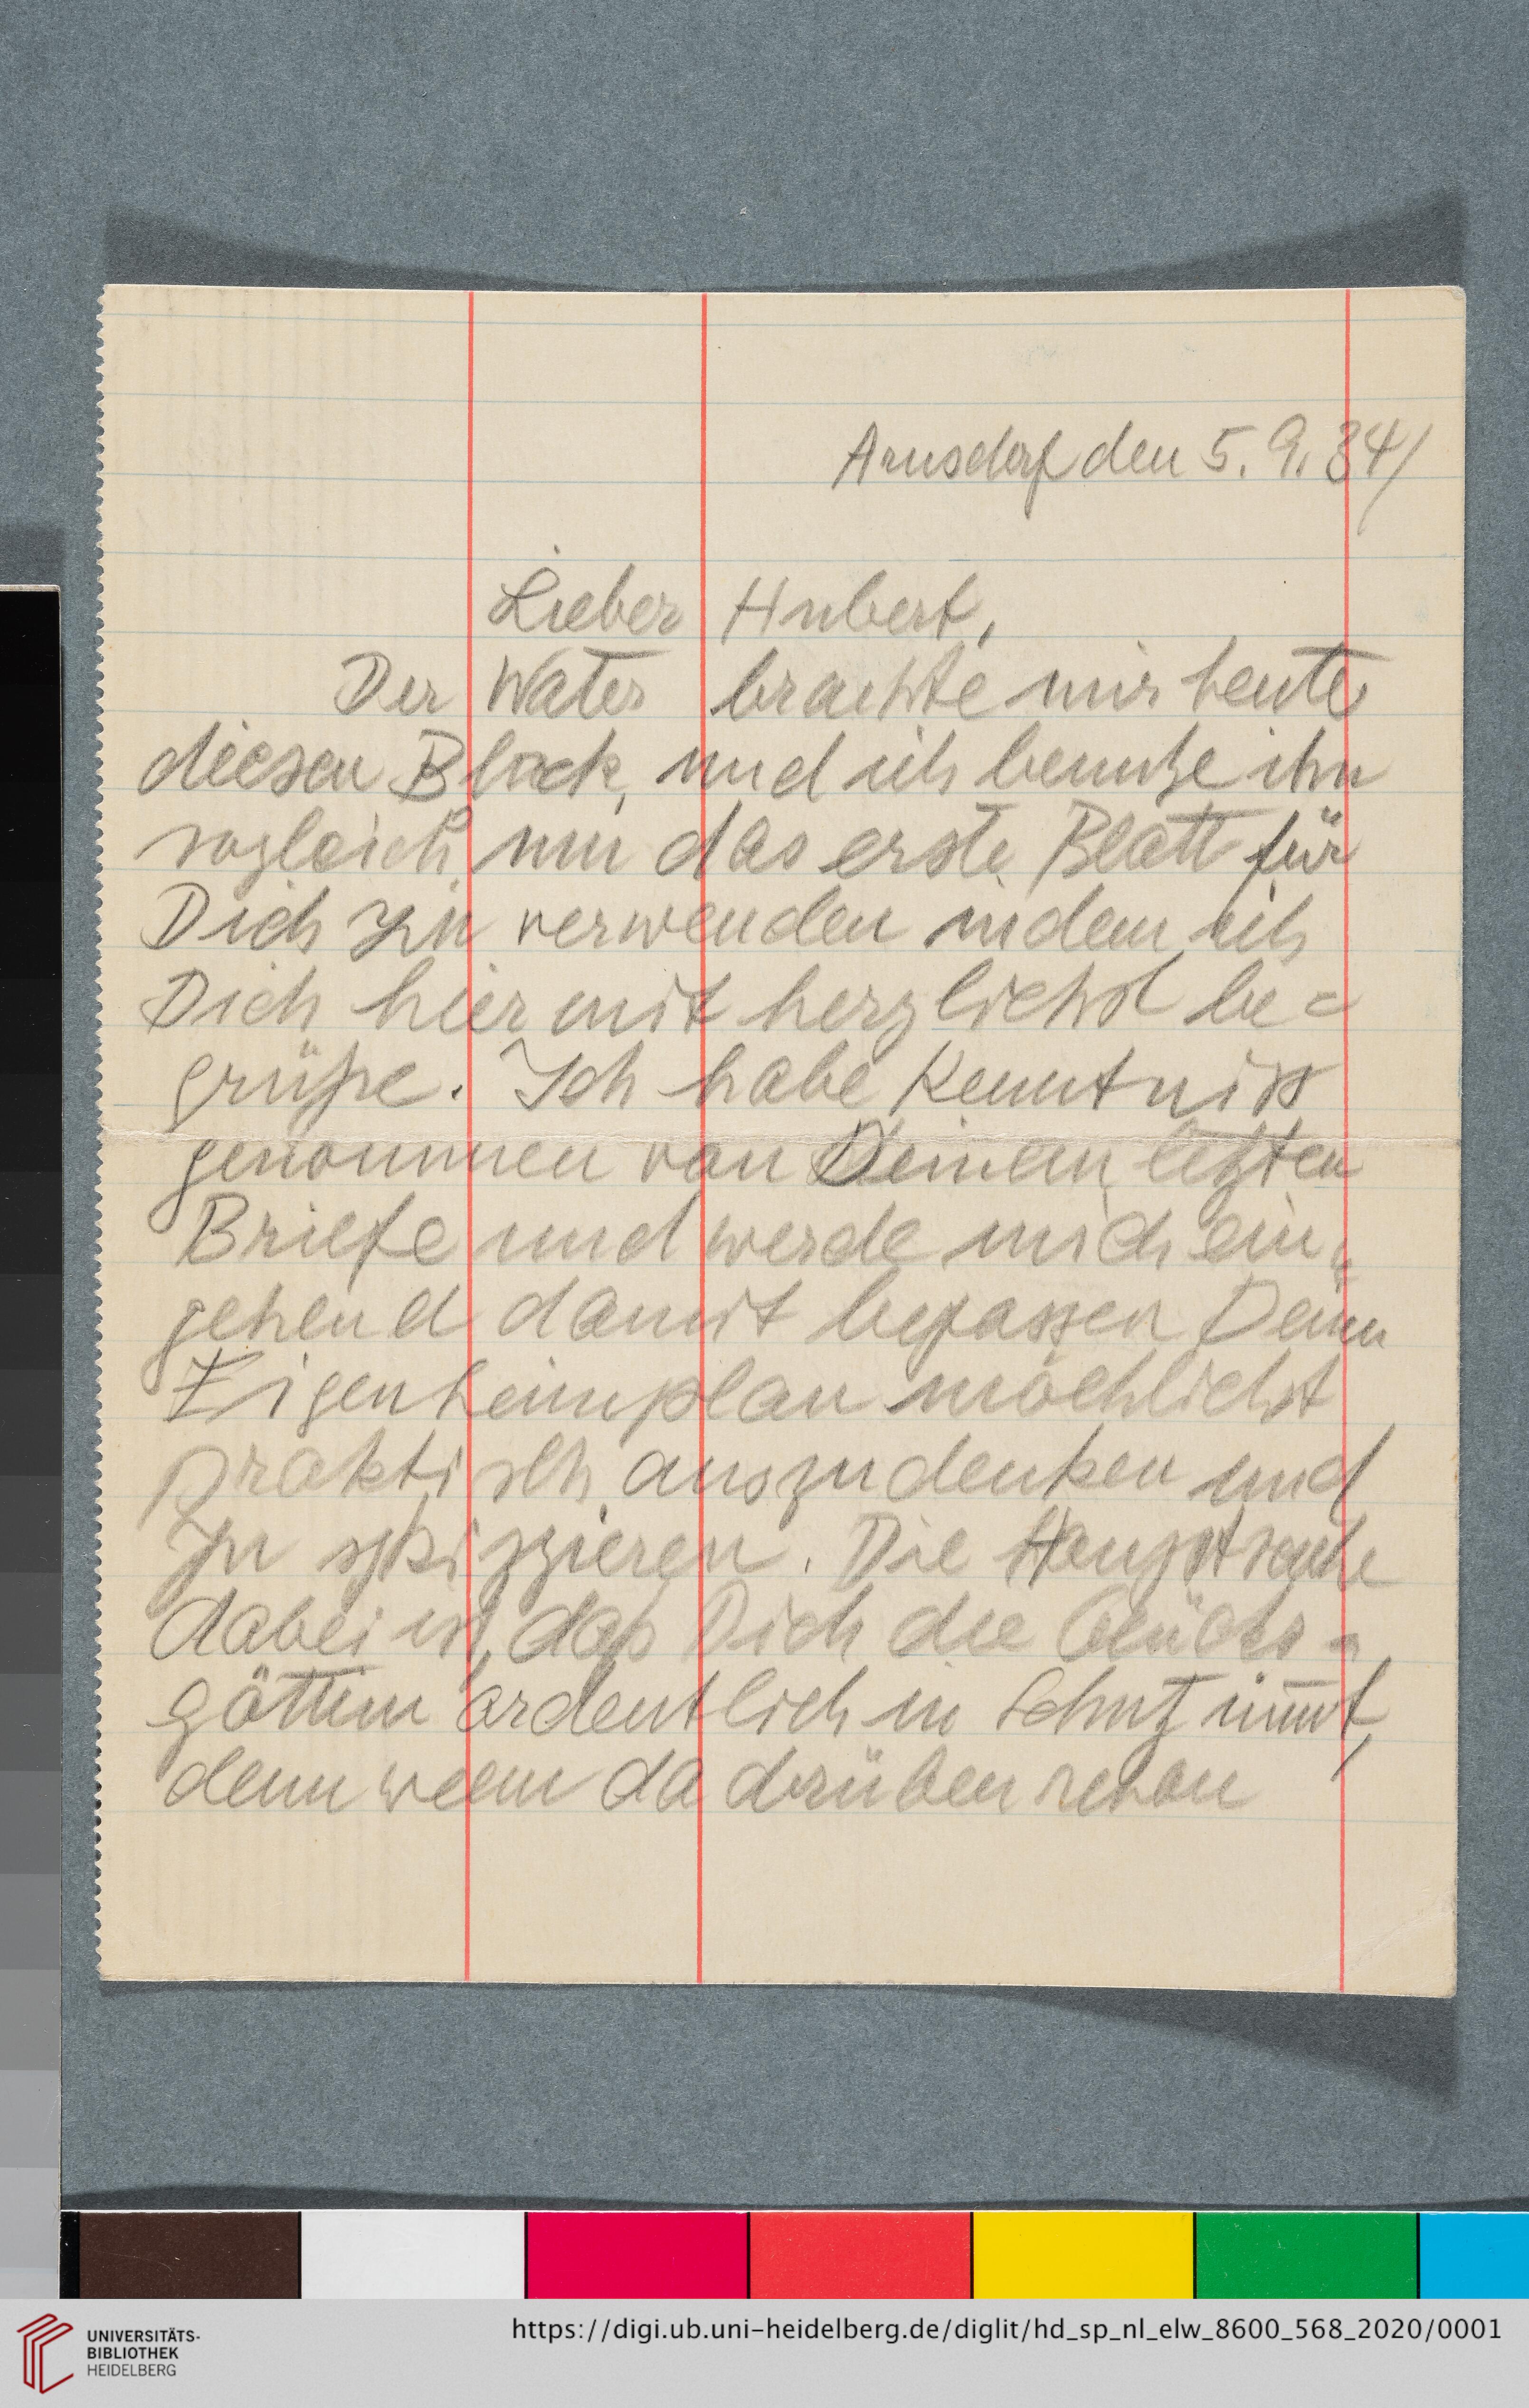 Arnsdorf den 5. 9. 34/
Lieber Hubert,
Der Water brachte mir heute
diesen Block, und ich benutze ihn
sogleich, um das erste Blatt für
Dich zu verwenden indem ich
Dich hiermit herzlichst be=
grüße. Ich habe Kenntniss
genommen von Deinem letzten
Briefe und werde mich ein=
gehend damit befassen Deinen
Eigenheimplan möchlichst
praktisch auszudenken und
zu skizzieren. Die Hauptsache
dabei ist, daß Dich die Glücks=
göttin ordentlich in Schutz nimmt,
denn wenn da drüben schon
UNIVERSITÄTS-
BIBLIOTHEK
HEIDELBERG
https://digi.ub.uni-heidelberg.de/diglit/hd_sp_nl_elw_8600_568_2020/0001